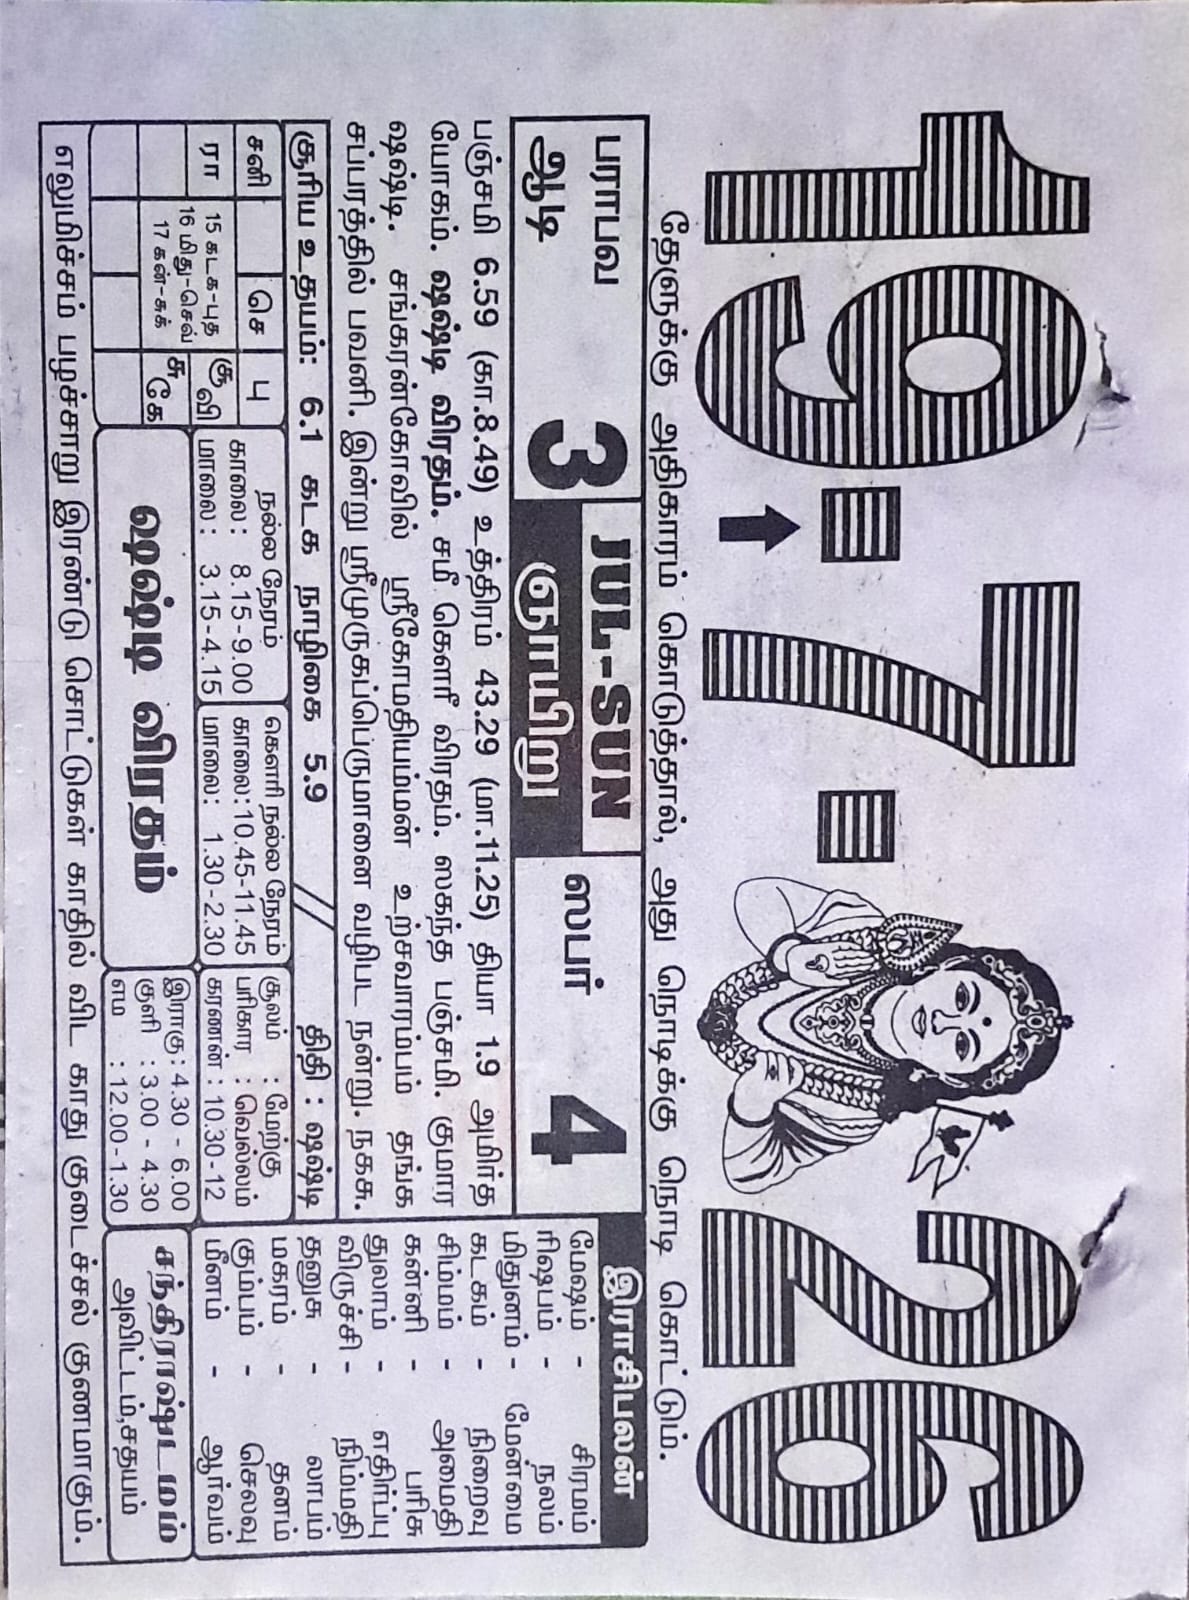 19-7-26
தேளுக்கு அதிகாரம் கொடுத்தால், அது நொடிக்கு நொடி கொட்டும்.
பராபவ
ஆடி 3
JUL-SUN
ஞாயிறு
ஸபர் 4
பஞ்சமி 6.59 (கா.8.49) உத்திரம் 43.29 (மா.11.25) தியா 1.9 அமிர்த
யோகம். ஷஷ்டி விரதம். சமீ கௌரீ விரதம். ஸகந்த பஞ்சமி. குமார
ஷஷ்டி. சங்கரன்கோவில் ஸ்ரீகோமதியம்மன் உற்சவாரம்பம் தங்க
சப்பரத்தில் பவனி. இன்று ஸ்ரீமுருகப்பெருமானை வழிபட நன்று. நகசு.
சூரிய உதயம்: 6.1 கடக நாழிகை 5.9 // திதி : ஷஷ்டி
சனி செ பு
ரா
15 கடக-புத
16 மிது-செவ்
17 கன்-சுக்
கு வி
சு கே
நல்ல நேரம்
காலை: 8.15-9.00
மாலை: 3.15-4.15
கௌரி நல்ல நேரம்
காலை:10.45-11.45
மாலை: 1.30-2.30
சூலம் : மேற்கு
பரிகார : வெல்லம்
கரணன் : 10.30-12
ஷஷ்டி விரதம்
இராகு : 4.30 - 6.00
குளி : 3.00 - 4.30
எம : 12.00-1.30
இராசிபலன்
மேஷம் - சிரமம்
ரிஷபம் - நலம்
மிதுனம் - மேன்மை
கடகம் - நிறைவு
சிம்மம் - அமைதி
கன்னி - பரிசு
துலாம் - எதிர்ப்பு
விருச்சி - நிம்மதி
தனுசு - லாபம்
மகரம் - தனம்
கும்பம் - செலவு
மீனம் - ஆர்வம்
சந்திராஷ்டமம்
அவிட்டம்,சதயம்
எலுமிச்சம் பழச்சாறு இரண்டு சொட்டுகள் காதில் விட காது குடைச்சல் குணமாகும்.